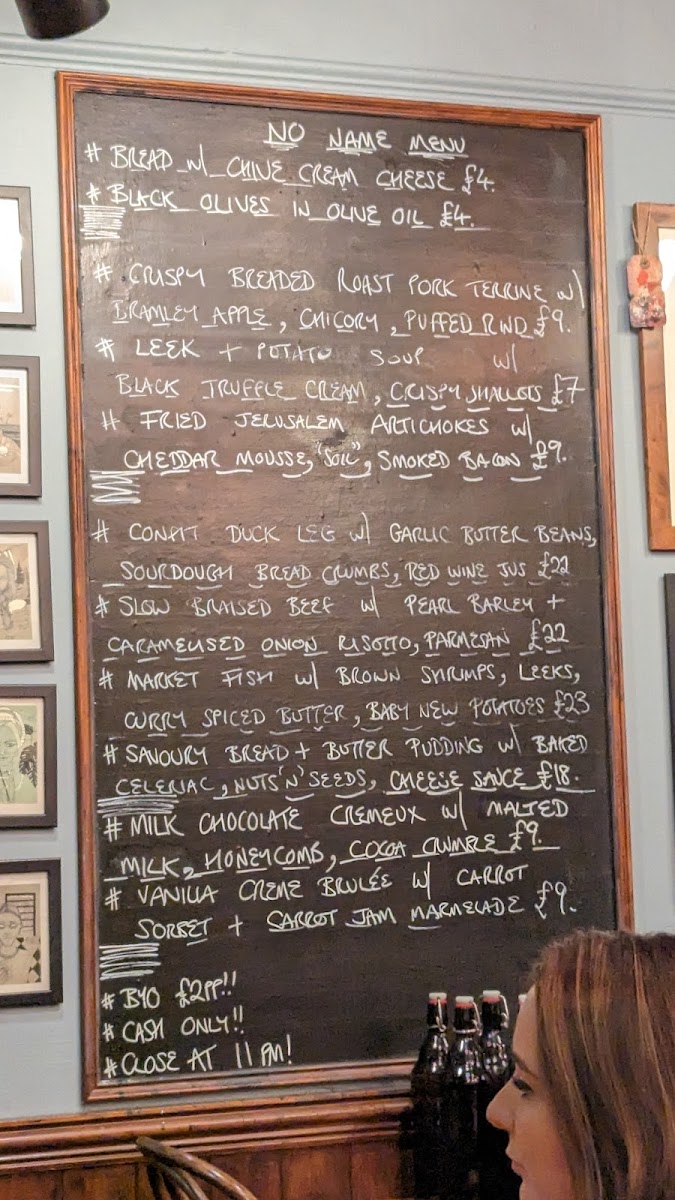 NO NAME MENU
# BREAD w/ CHIVE CREAM CHEESE £4.
# BLACK OLIVES IN OLIVE OIL £4.
# CRISPY BREADED ROAST PORK TERRINE w/
BRAMLEY APPLE, CHICORY, PUFFED RIND £9.
# LEEK + POTATO SOUP w/
BLACK TRUFFLE CREAM, CRISPY SHALLOTS £7
# FRIED JERUSALEM ARTICHOKES w/
CHEDDAR MOUSSE, "SOIL", SMOKED BACON £9.
# CONFIT DUCK LEG w/ GARLIC BUTTER BEANS,
SOURDOUGH BREAD CRUMBS, RED WINE JUS £22
# SLOW BRAISED BEEF w/ PEARL BARLEY +
CARAMELISED ONION RISOTTO, PARMESAN £22
# MARKET FISH w/ BROWN SHRIMPS, LEEKS,
CURRY SPICED BUTTER, BABY NEW POTATOES £23
# SAVOURY BREAD + BUTTER PUDDING w/ BAKED
CELERIAC, NUTS 'N' SEEDS, CHEESE SAUCE £18.
# MILK CHOCOLATE CREMEUX w/ MALTED
MILK, HONEYCOMB, COCOA CRUMBLE £9.
# VANILLA CREME BRULÉE w/ CARROT
SORBET + CARROT JAM MARMELADE £9.
# BYO £2PP!!
# CASH ONLY!!
# CLOSE AT 11 PM!